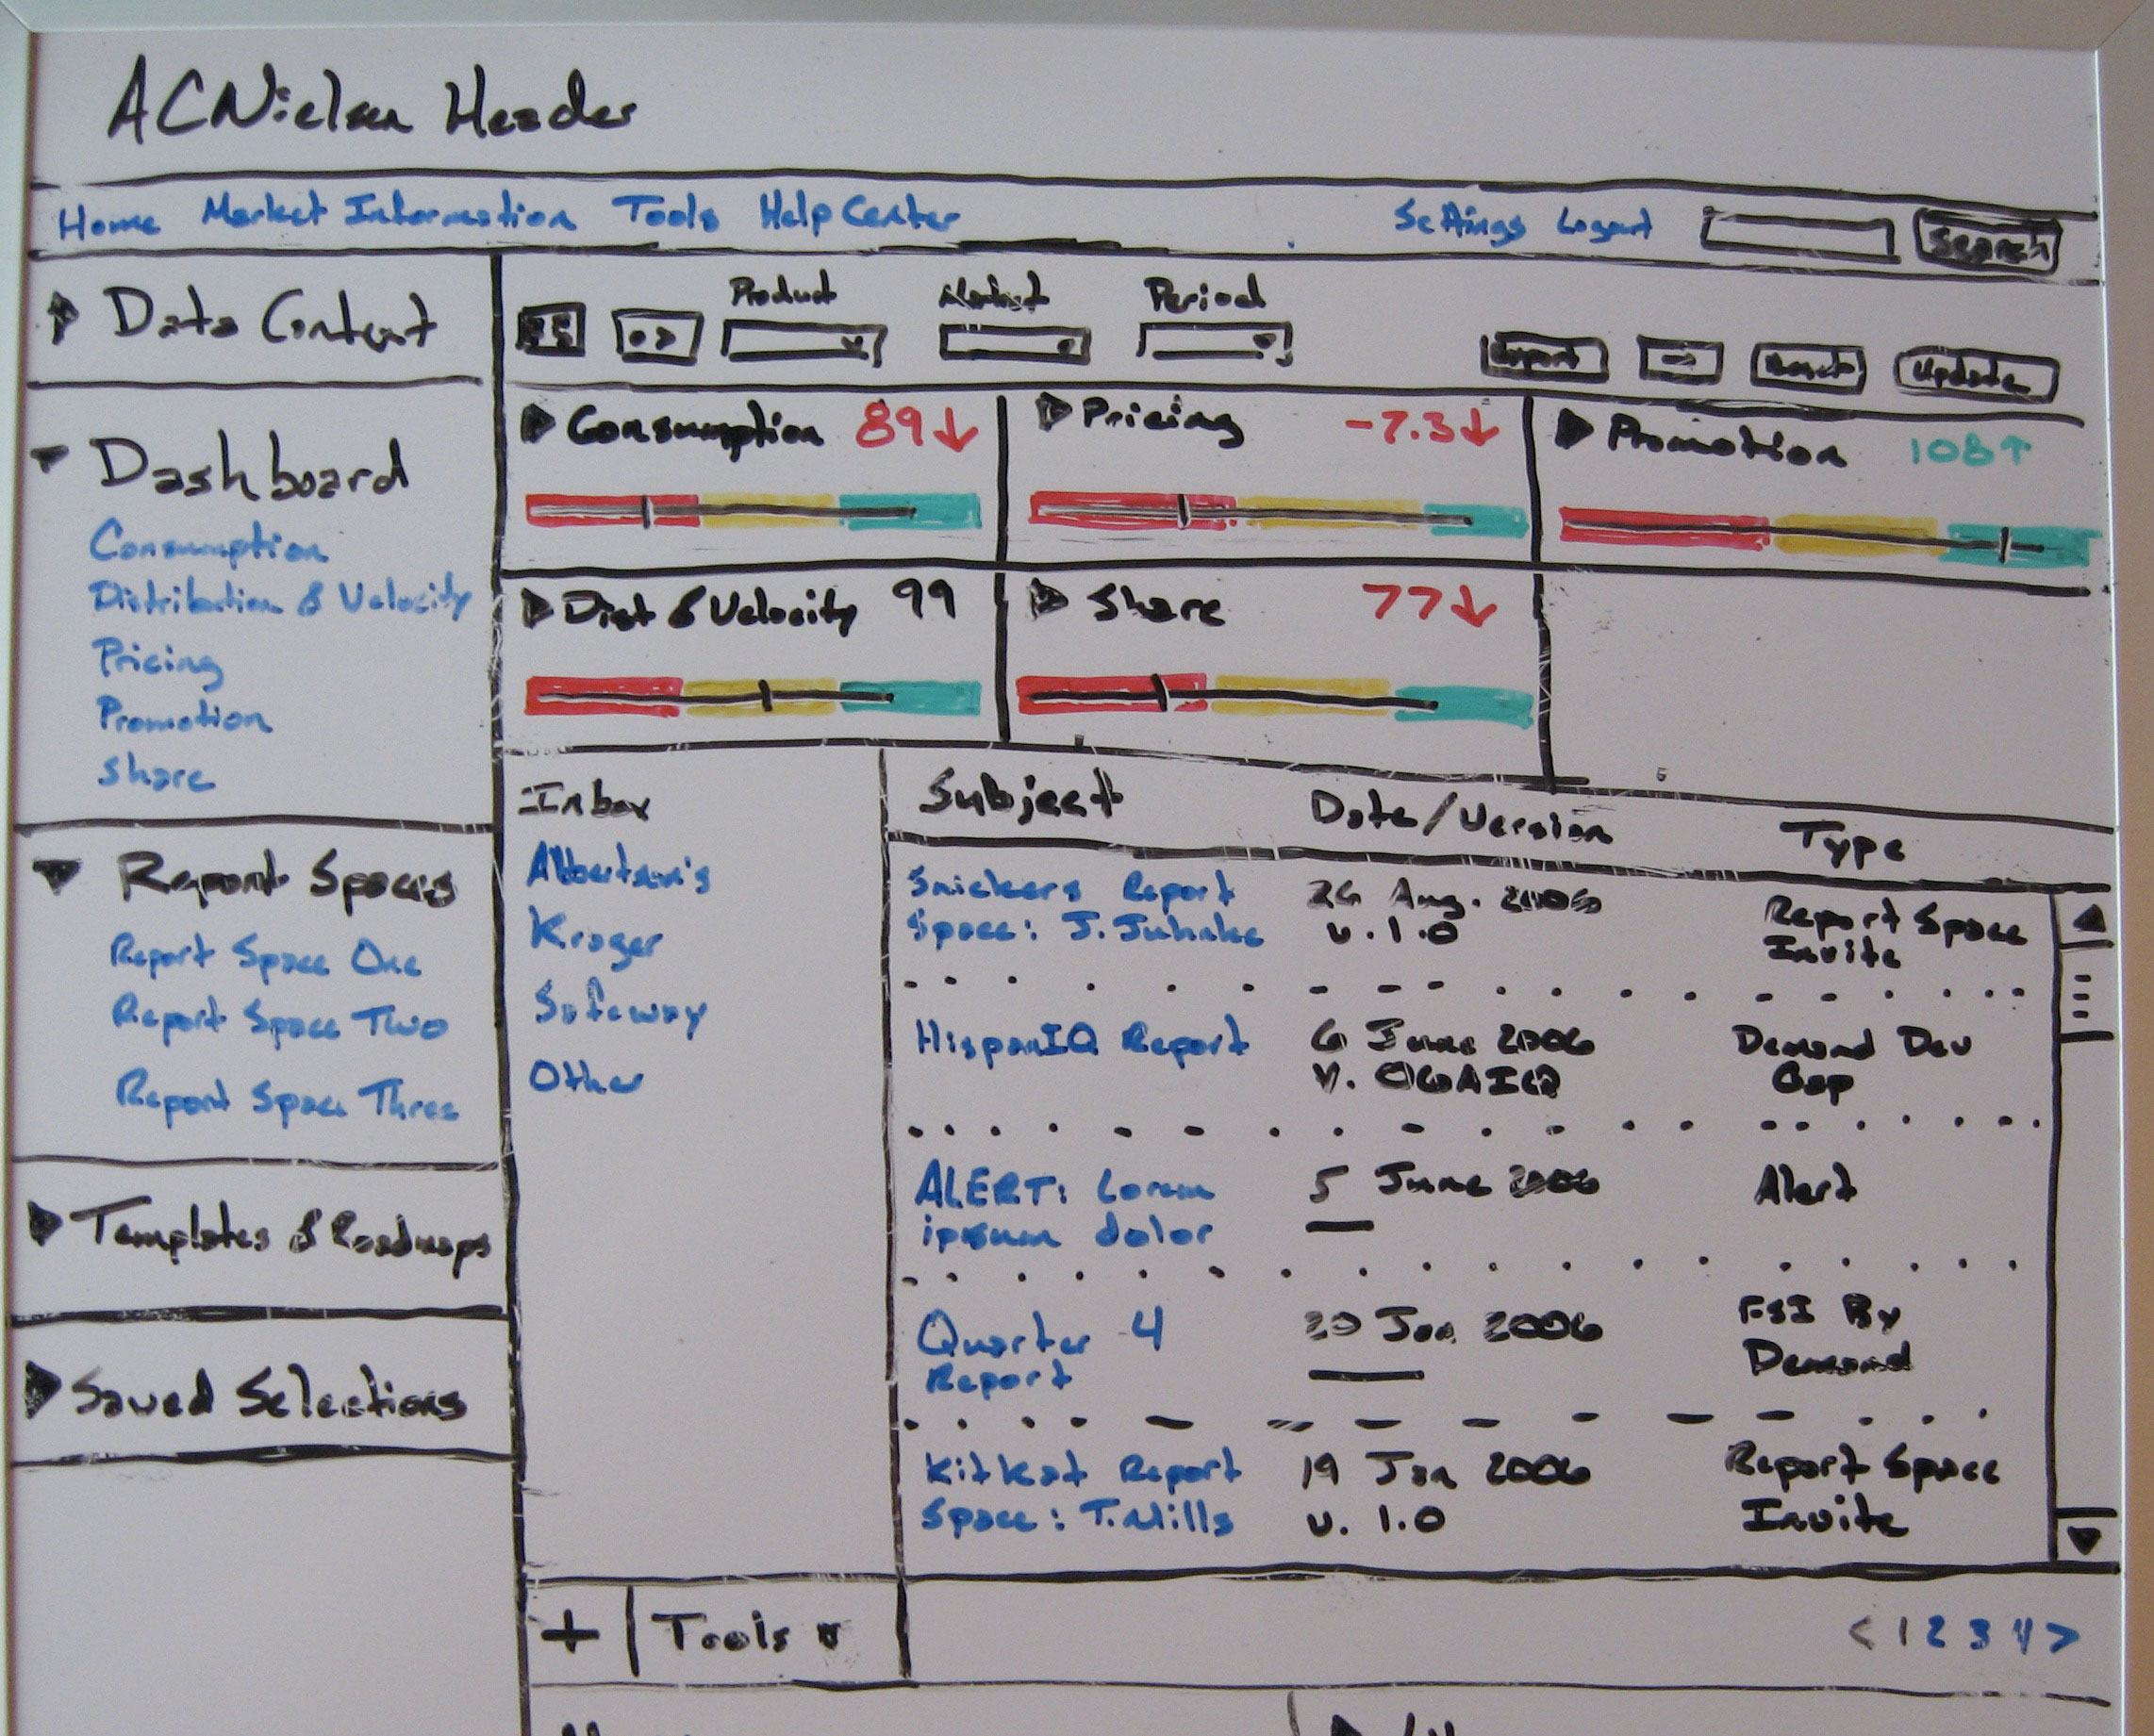 ACNielsen Header
Home Market Information Tools Help Center Settings Logout Search
Data Content
Product Market Period
Export Reset Update
Dashboard
Consumption
Distribution & Velocity
Pricing
Promotion
Share
Consumption 89↓
Pricing -7.3↓
Promotion 108↑
Dist & Velocity 99
Share 77↓
Report Spaces
Report Space One
Report Space Two
Report Space Three
Templates & Roadmaps
Saved Selections
Inbox
Albertson's
Kroger
Safeway
Other
Subject Date/Version Type
Snickers Report 26 Aug. 2006 Report Space
Space: J. v.1.0 Invite
HispanIQ Report 6 June 2006 Demand Dev
v. Gap
ALERT: Lorem 5 June 2006 Alert
ipsum dolor
Quarter 4 20 Jan 2006 FSI By
Report Demand
KitKat Report 19 Jan 2006 Report Space
Space: T.Mills v. 1.0 Invite
+ Tools
< 1 2 3 4 >